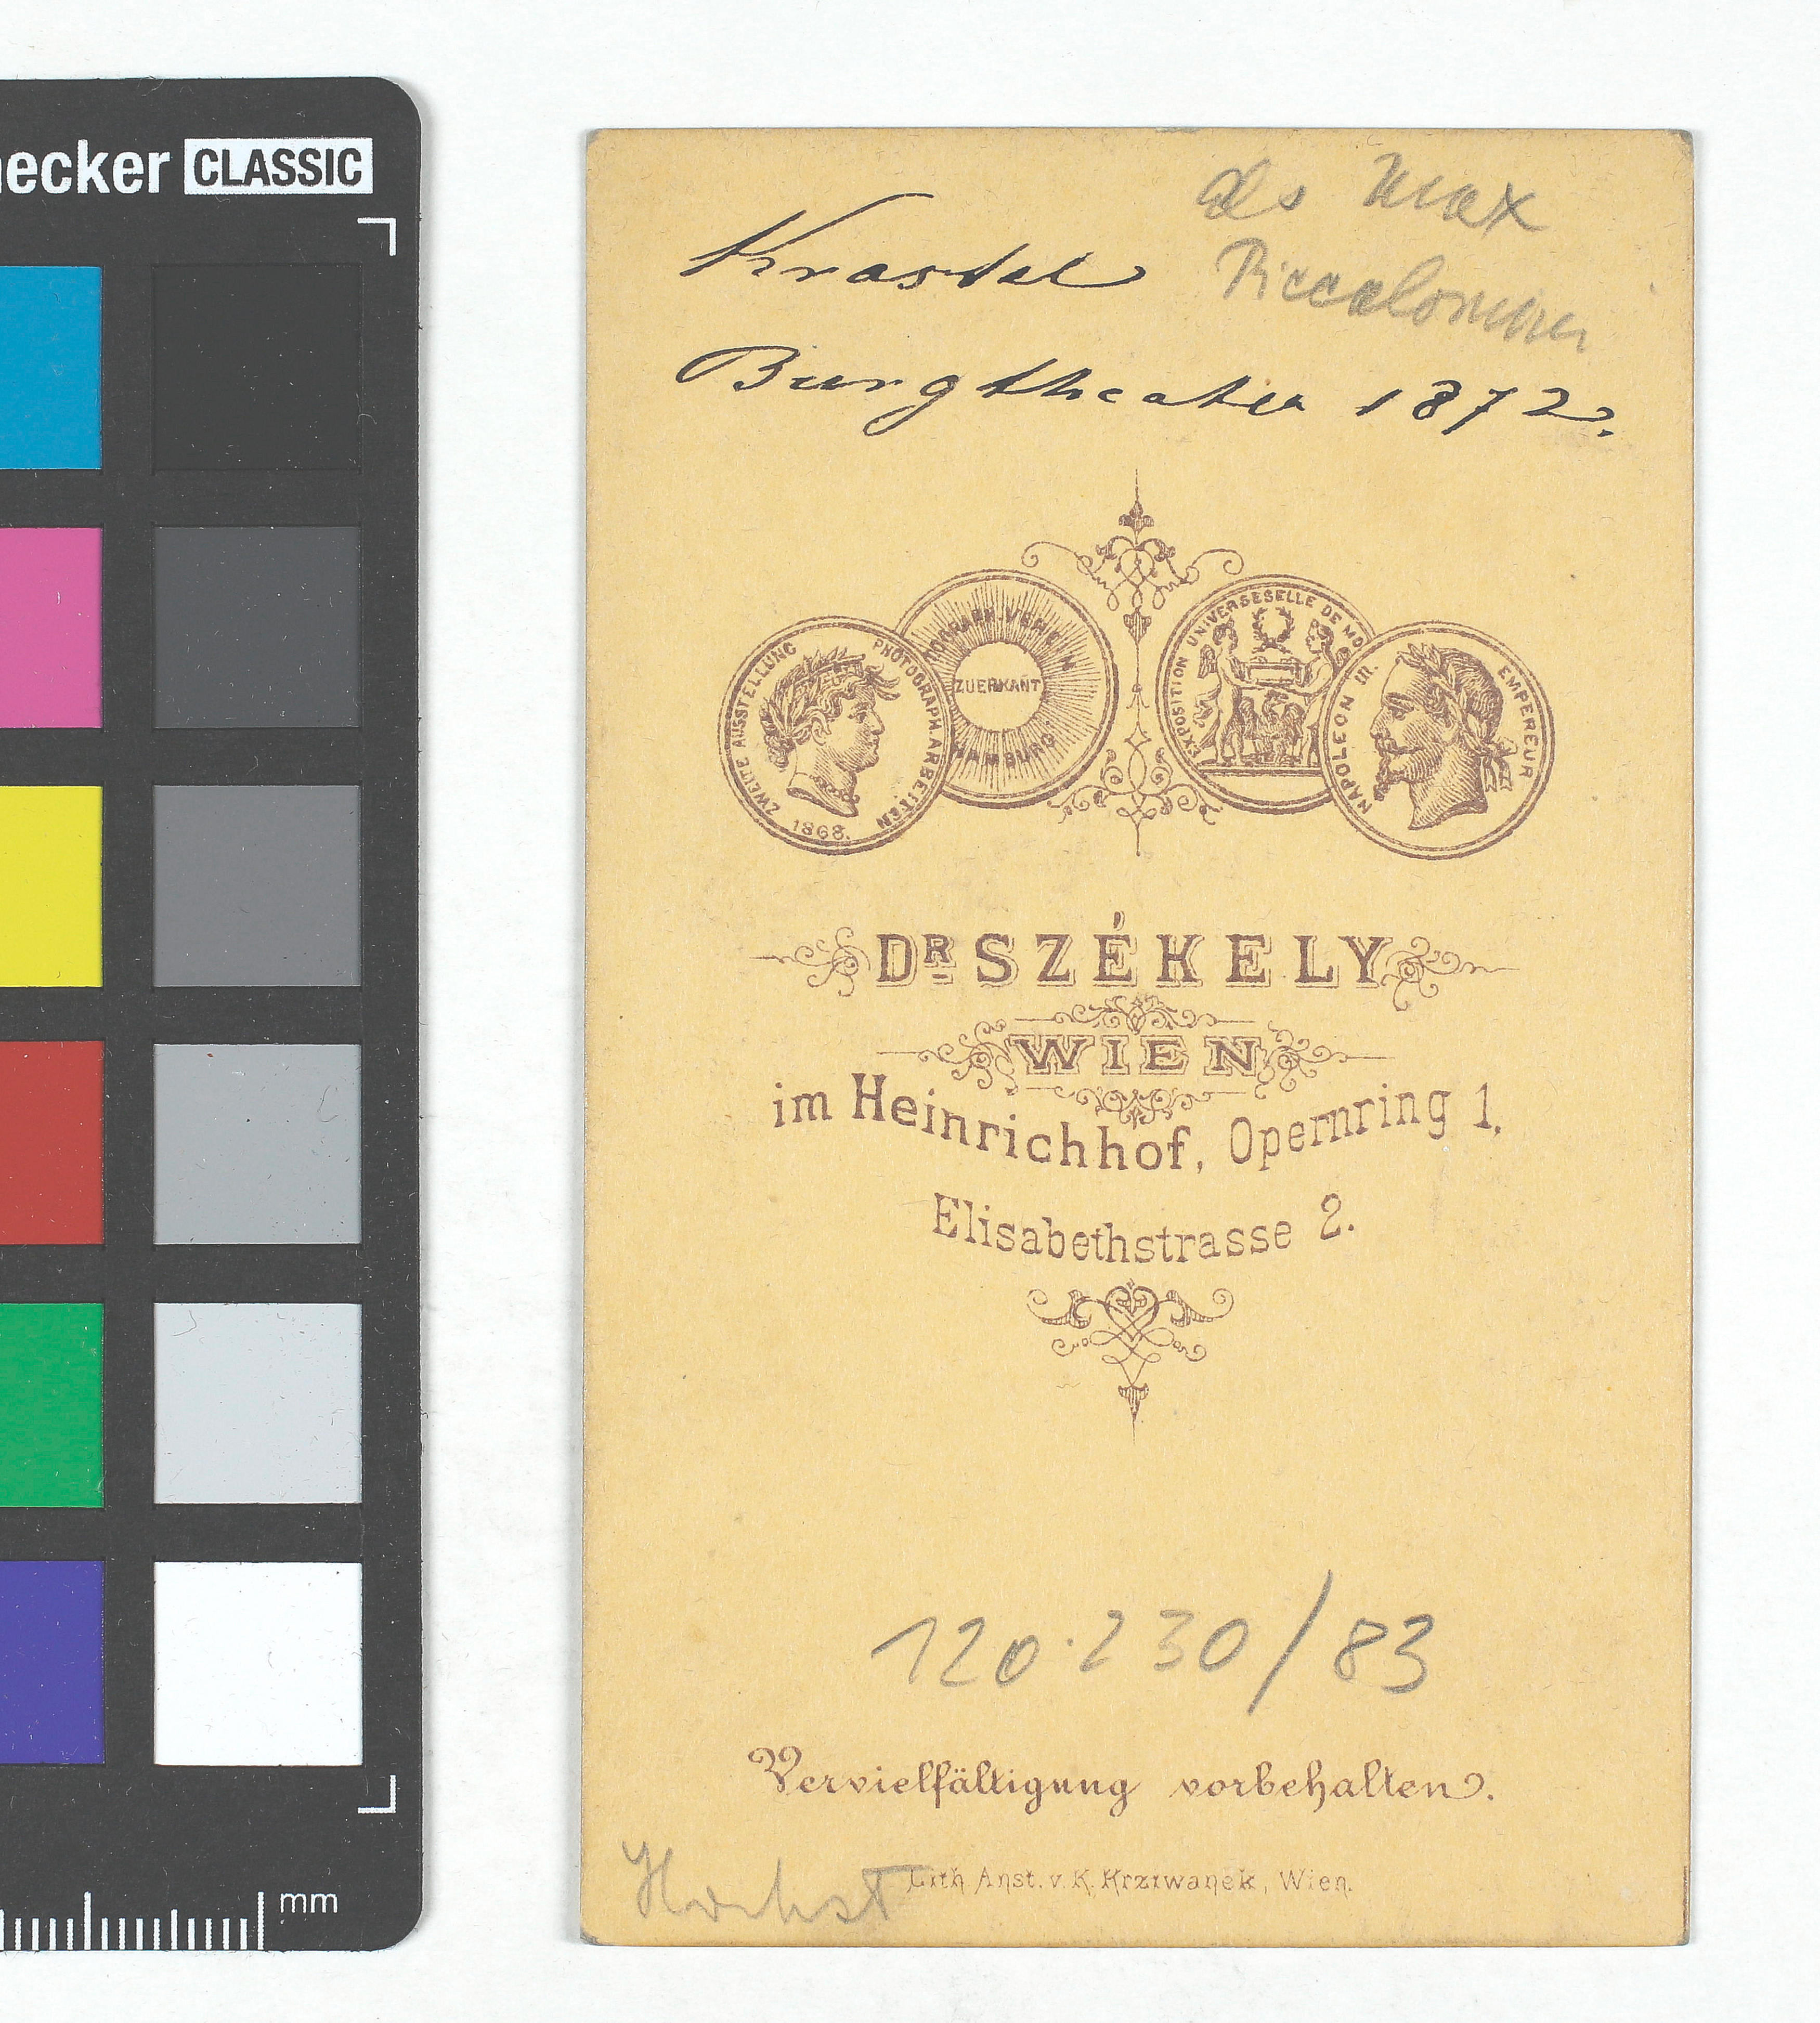 necker CLASSIC
als Max
Krastel Piccolomini
Burgtheater 1872.
ZWEITE AUSSTELLUNG PHOTOGRAPH. ARBEITEN
1868.
ZUERKANT
HAMBURG
EXPOSITION UNIVERSESELLE DE MO
NAPOLEON III. EMPEREUR
DR SZÉKELY
WIEN
im Heinrichhof, Opernring 1.
Elisabethstrasse 2.
120.230/83
Vervielfältigung vorbehalten.
Lith Anst. v. K. Krziwanek, Wien.
mm